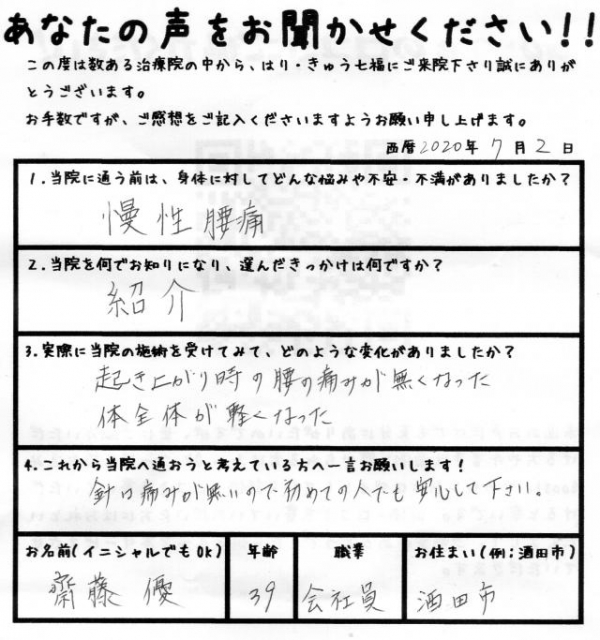 あなたの声をお聞かせください!!
この度は数ある治療院の中から、はり・きゅう七福にご来院下さり誠にありが
とうございます。
お手数ですが、ご感想をご記入くださいますようお願い申し上げます。
西暦2020年 7月 2日
1.当院に通う前は、身体に対してどんな悩みや不安・不満がありましたか?
慢性腰痛
2.当院を何でお知りになり、選んだきっかけは何ですか?
紹介
3.実際に当院の施術を受けてみて、どのような変化がありましたか?
起き上がり時の腰の痛みが無くなった
体全体が軽くなった
4.これから当院へ通おうと考えている方へ一言お願いします!
針は痛みが無いので初めての人でも安心して下さい。
お名前(イニシャルでもOK) 年齢 職業 お住まい(例;酒田市)
齋藤 優 39 会社員 酒田市